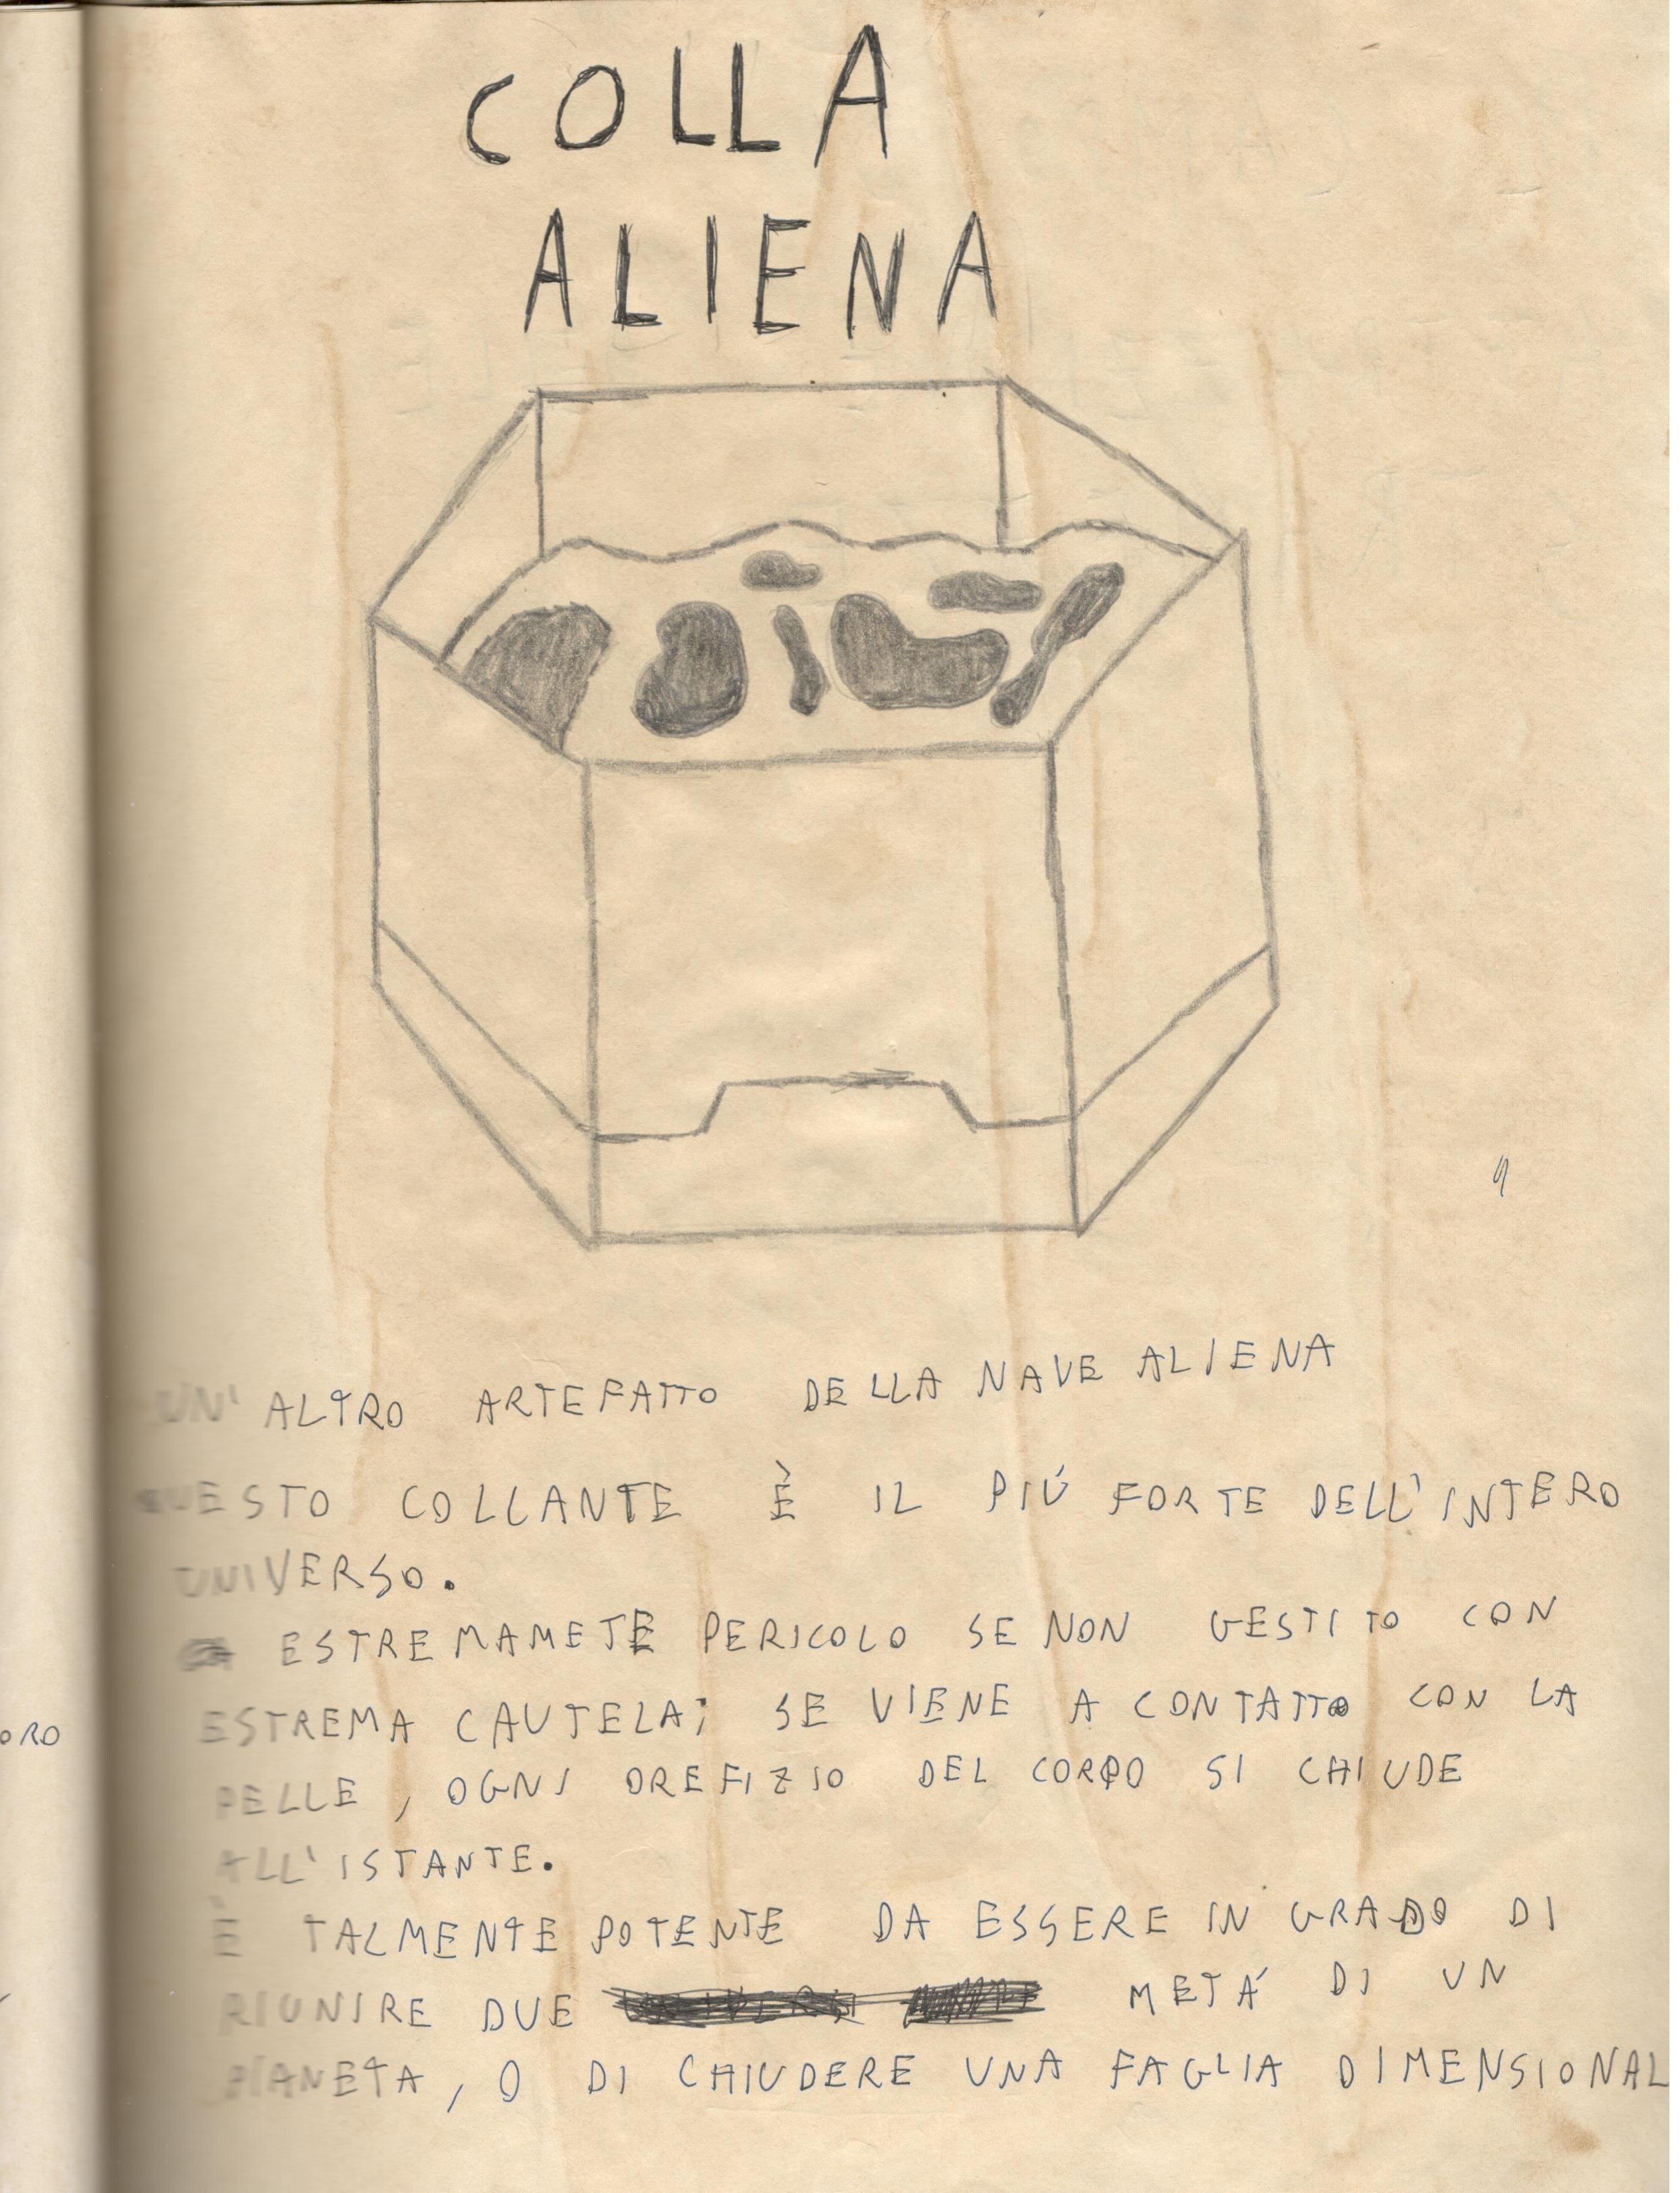 COLLA
ALIENA
UN'ALTRO ARTEFATTO DELLA NAVE ALIENA
QUESTO COLLANTE È IL PIÚ FORTE DELL'INTERO
UNIVERSO.
ESTREMAMETE PERICOLO SE NON GESTITO CON
ESTREMA CAUTELA; SE VIENE A CONTATTO CON LA
ORO
PELLE, OGNI OREFIZIO DEL CORPO SI CHIUDE
ALL'ISTANTE.
È TALMENTE POTENTE DA ESSERE IN GRADO DI
RIUNIRE DUE METÁ DI UN
PIANETA, O DI CHIUDERE UNA FAGLIA DIMENSIONAL